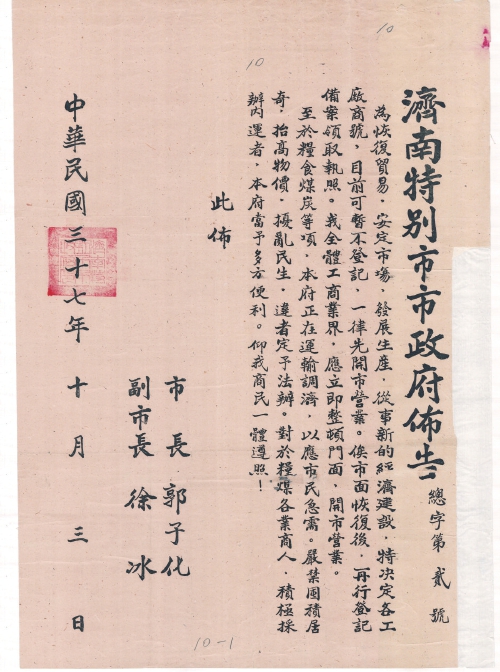 濟南特別市市政府佈告
總字第貳號
為恢復貿易，安定市場，發展生產，從事新的經濟建設，特决定各工
廠商號，目前可暫不登記，一律先開市營業。俟市面恢復後，再行登記
備案領取執照。我全體工商業界，應立即整頓門面，開市營業。
至於糧食煤炭等項，本府正在運輸調濟，以應市民急需。嚴禁囤積居
奇，抬高物價，擾亂民生，違者定予法辦。對於糧煤各業商人，積極採
辦內運者，本府當予多方便利。仰我商民一體遵照！
此佈
市長 郭子化
副市長 徐冰
中華民國三十七年十月三日
10
10
10-1